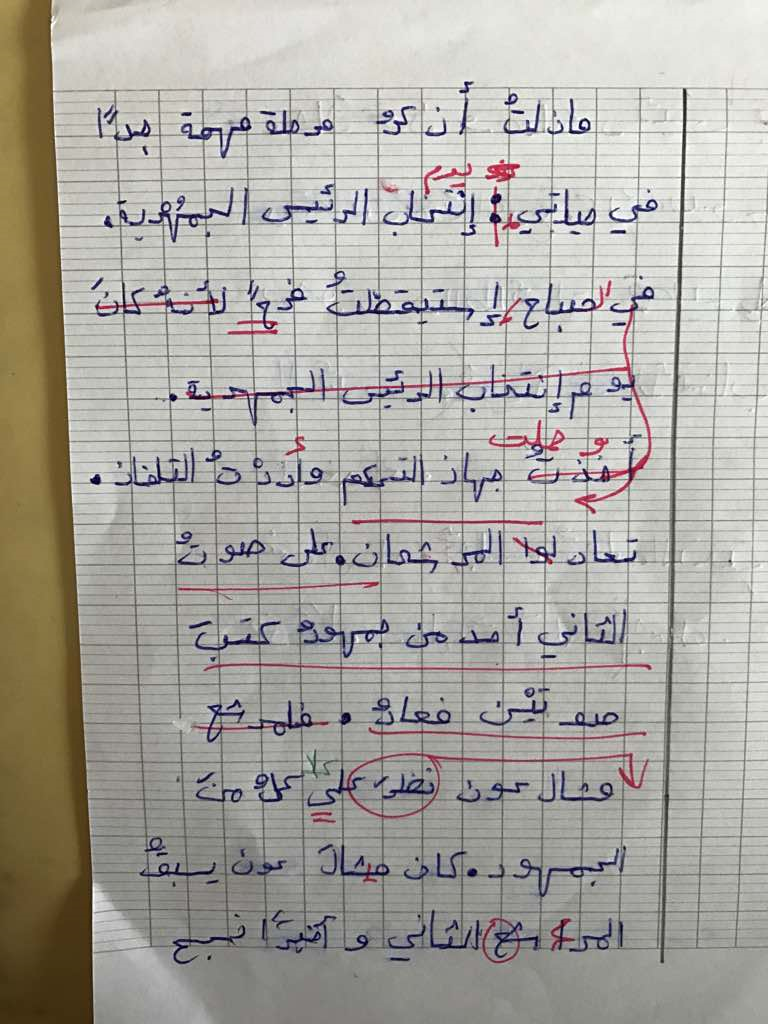 مازلتُ أن كر مرحلة مهمة جدًا
يوم
في حياتي : إنتخاب الرئيس الجمهُورية.
في الصباح إستيقظتُ فرحً لأنهُ كانَ
يوم إنتخاب الرئيس الجمهورية.
أخذتُ جهاز التحكم وأدرْتُ التلفاز.
تعادلوا المرشحان. على صوتُ
الثاني أحد من جمهورُ كتبَ
صوتَيْن فعادُ. فلمرشح
ميشال عون نظرَ على كلُ منَ
الجمهور. كان ميشالَ عون يسبقُ
المرشح الثاني و آخيرًا نجح